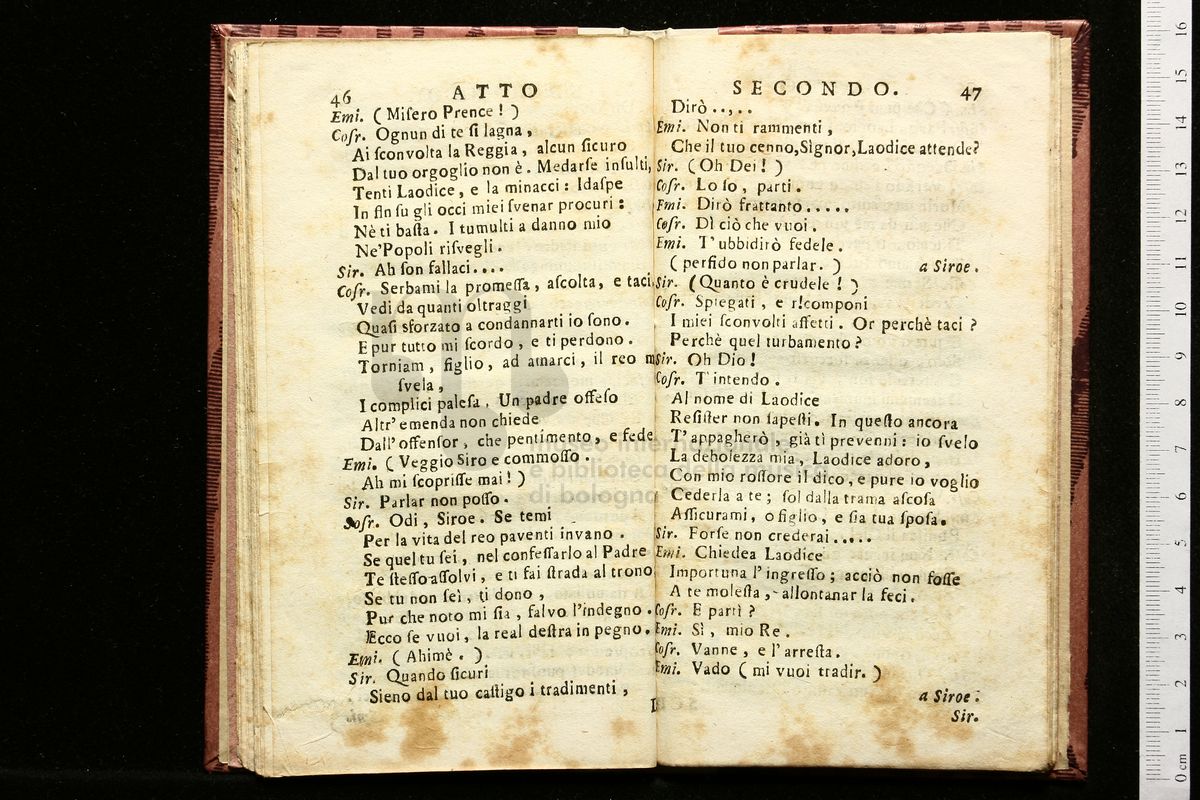 46 ATTO
Emi. (Misero Prence!)
Cosr. Ognun di te si lagna,
Ai sconvolta la Reggia, alcun sicuro
Dal tuo orgoglio non è. Medarse insulti,
Tenti Laodice, e la minacci: Idaspe
In fin su gli occi miei svenar procuri:
Nè ti basta. I tumulti a danno mio
Ne'Popoli risvegli.
Sir. Ah son fallaci....
Cosr. Serbami la promessa, ascolta, e taci.
Vedi da quanti oltraggi
Quasi sforzato a condannarti io sono.
E pur tutto mi scordo, e ti perdono.
Torniam, figlio, ad amarci, il reo m
svela,
I complici palesa. Un padre offeso
Altr' emenda non chiede
Dall'offensor, che pentimento, e fede
Emi. (Veggio Siro e commosso.
Ah mi scoprisse mai!)
Sir. Parlar non posso.
Cosr. Odi, Siroe. Se temi
Per la vita del reo paventi invano.
Se quel tu sei, nel confessarlo al Padre
Te stesso assolvi, e ti fai strada al trono
Se tu non sei, ti dono,
Pur che noto mi sia, salvo l'indegno.
Ecco se vuoi, la real destra in pegno.
Emi. (Ahimè.)
Sir. Quando sicuri
Sieno dal tuo castigo i tradimenti,
SECONDO. 47
Dirò..,..
Emi. Non ti rammenti,
Che il tuo cenno, Signor, Laodice attende?
Sir. (Oh Dei!)
Cosr. Lo so, parti.
Emi. Dirò frattanto.....
Cosr. Dì ciò che vuoi.
Emi. T'ubbidirò fedele.
(perfido non parlar.) a Siroe.
Sir. (Quanto è crudele!)
Cosr. Spiegati, e ricomponi
I miei sconvolti affetti. Or perchè taci?
Perchè quel turbamento?
Sir. Oh Dio!
Cosr. T'intendo.
Al nome di Laodice
Resister non sapesti. In questo ancora
T'appagherò, già tì prevenni: io svelo
La debolezza mia, Laodice adoro,
Con mio rossore il dico, e pure io voglio
Cederla a te; sol dalla trama ascosa
Assicurami, o figlio, e sia tua sposa.
Sir. Forse non crederai.....
Emi. Chiedea Laodice
Importuna l'ingresso; acciò non fosse
A te molesta, allontanar la feci.
Cosr. E partì?
Emi. Sì, mio Re.
Cosr. Vanne, e l'arresta.
Emi. Vado (mi vuoi tradir.)
a Siroe.
Sir.
museo internazionale
e biblioteca della musica
di bologna